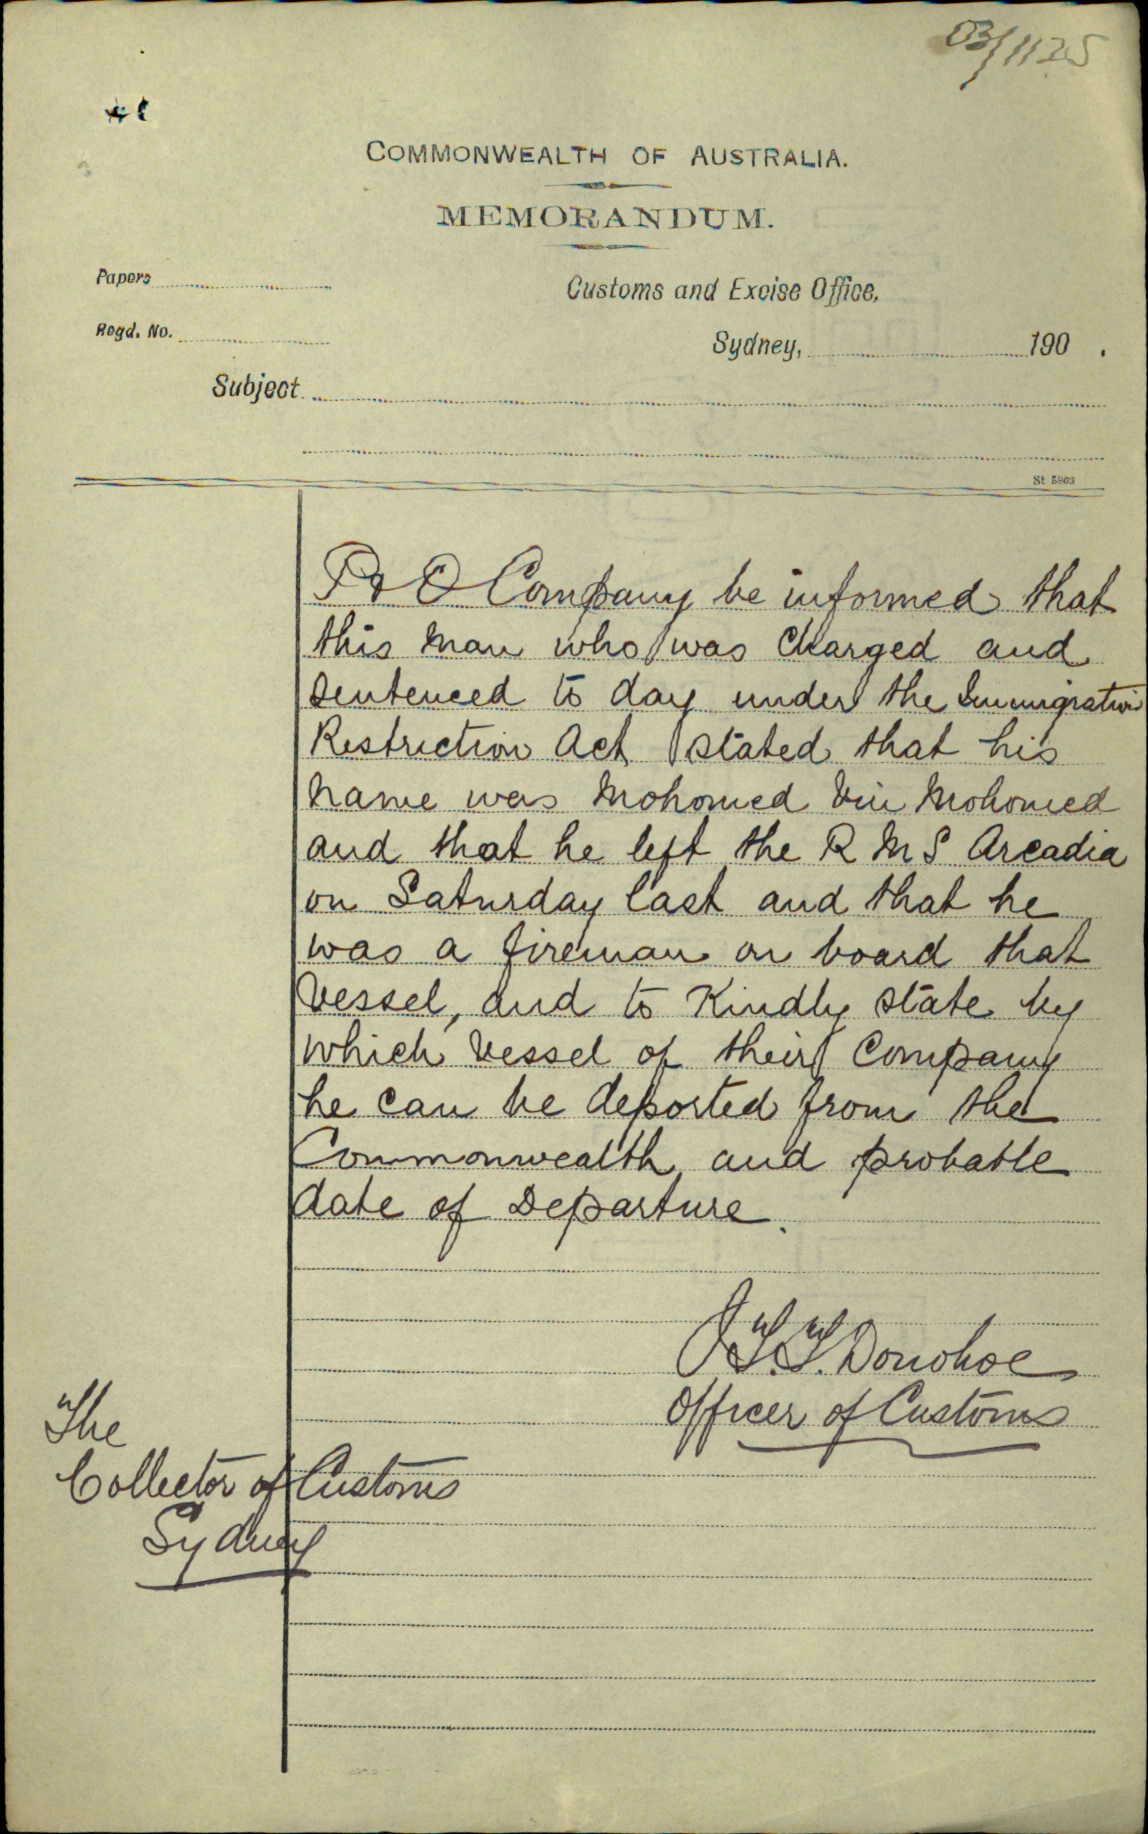 03/1125
COMMONWEALTH OF AUSTRALIA.
MEMORANDUM.
Papers
Customs and Excise Office,
Regd. No.
Sydney, 190 .
Subject
St 5203
P & O Company be informed that
this man who was charged and
sentenced to day under the Immigration
Restriction Act stated that his
name was Mohomed Vin Mohomed
and that he left the R M S Arcadia
on Saturday last and that he
was a fireman on board that
Vessel, and to Kindly state by
which Vessel of their Company
he can be deported from the
Commonwealth and probable
date of Departure.
J.T.T. Donohoe
Officer of Customs
The
Collector of Customs
Sydney